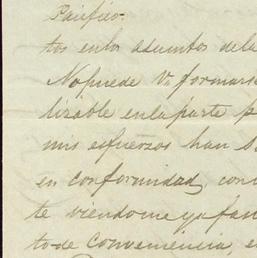 Pacífico.
tos en los asuntos de la
No puede V. formars
lizable en la parte p
mis esfuerzos han s
en conformidad, con
te viendome ya fan
to de conveniencia, e